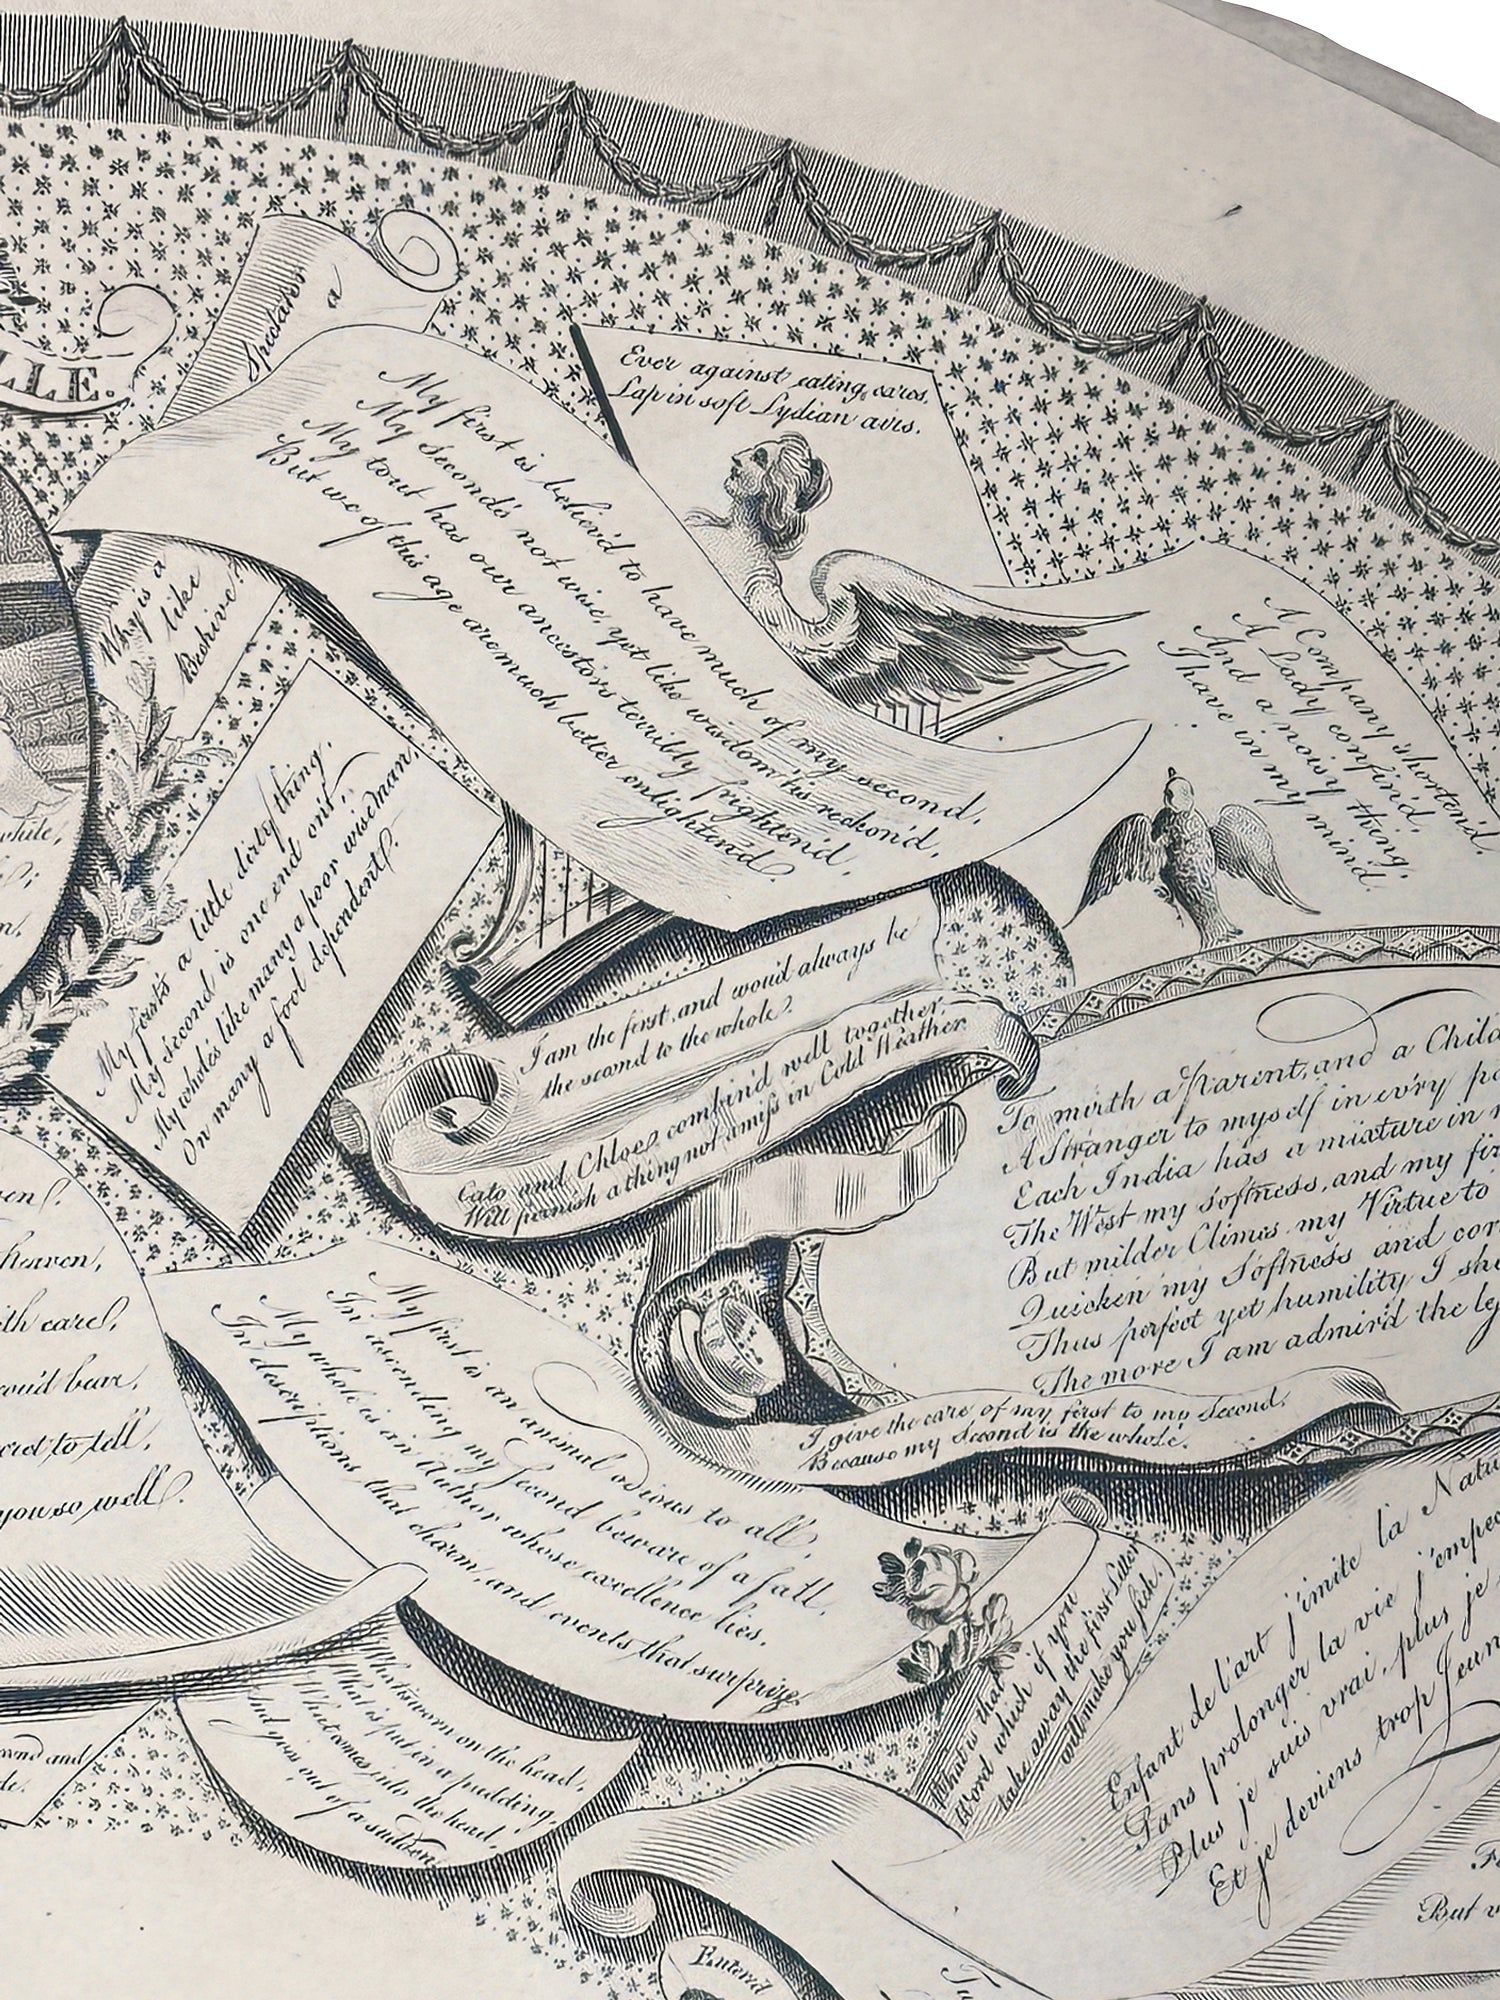 LLE.
Why is a
Spectator
like a
Beehive?
Ever against eating cares,
Lap in soft Lydian airs.
My first is believ'd to have much of my second,
My Second's not wise, yet like wisdom 'tis reckon'd,
My tout has our ancestors terribly frighten'd,
But we of this age are much better enlighten'd
A Company shorten'd.
A Lady confin'd.
And a noisy thing.
I have in my mind.
My first's a little dirty thing.
My Second is one end on't,
My whole's like many a poor wiseman,
On many a fool dependent.
I am the first, and wou'd always be
the second to the whole.
Cato and Chloe combin'd well together,
Will furnish a thing not amiss in Cold Weather.
To mirth a Parent, and a Child
A Stranger to myself in ev'ry
Each India has a mixture in
The West my softness, and my
But milder Climes my Virtue to
Quicken my Softness and
Thus perfect yet humility I
The more I am admir'd the
I give the care of my first to my Second.
Because my Second is the whole.
My first is an animal odious to all,
In ascending my Second beware of a fall,
My whole is in Author whose excellence lies,
In descriptions that charm, and events that surprize.
What is worn on the head,
What is put in a pudding,
What comes into the head,
And goes out of a sudden.
What is that
Word which if you
take away the first Letter
will make you sick.
Enfant de l'art j'imite la
Sans prolonger la vie
Plus je suis vrai, plus je
Et je deviens trop
while,
heaven,
with care,
wou'd bear,
to tell,
you so well.
and
But
Entered